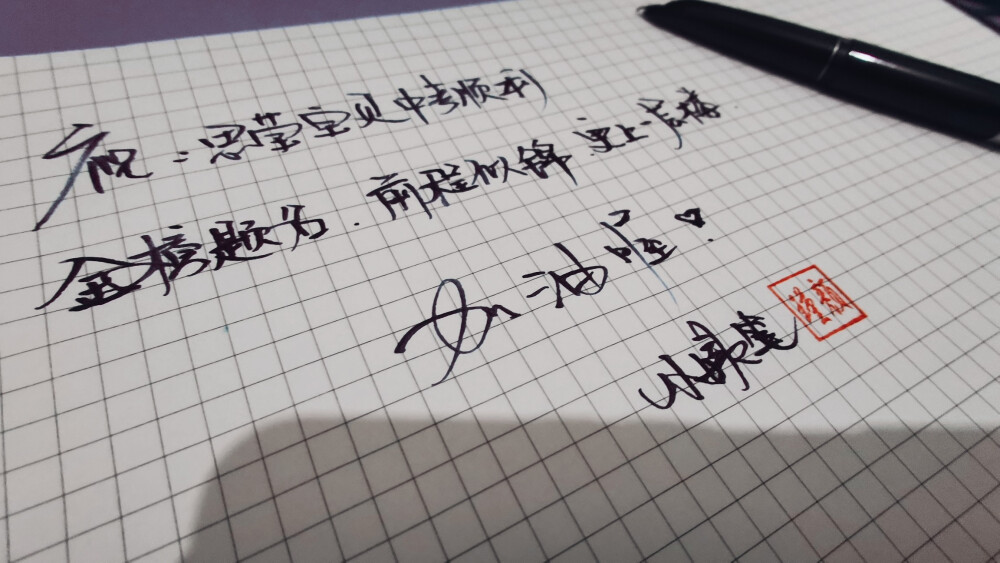 祝:思莹宝贝中考顺利
金榜题名.前程似锦.更上一层楼
加油喔♡.
小